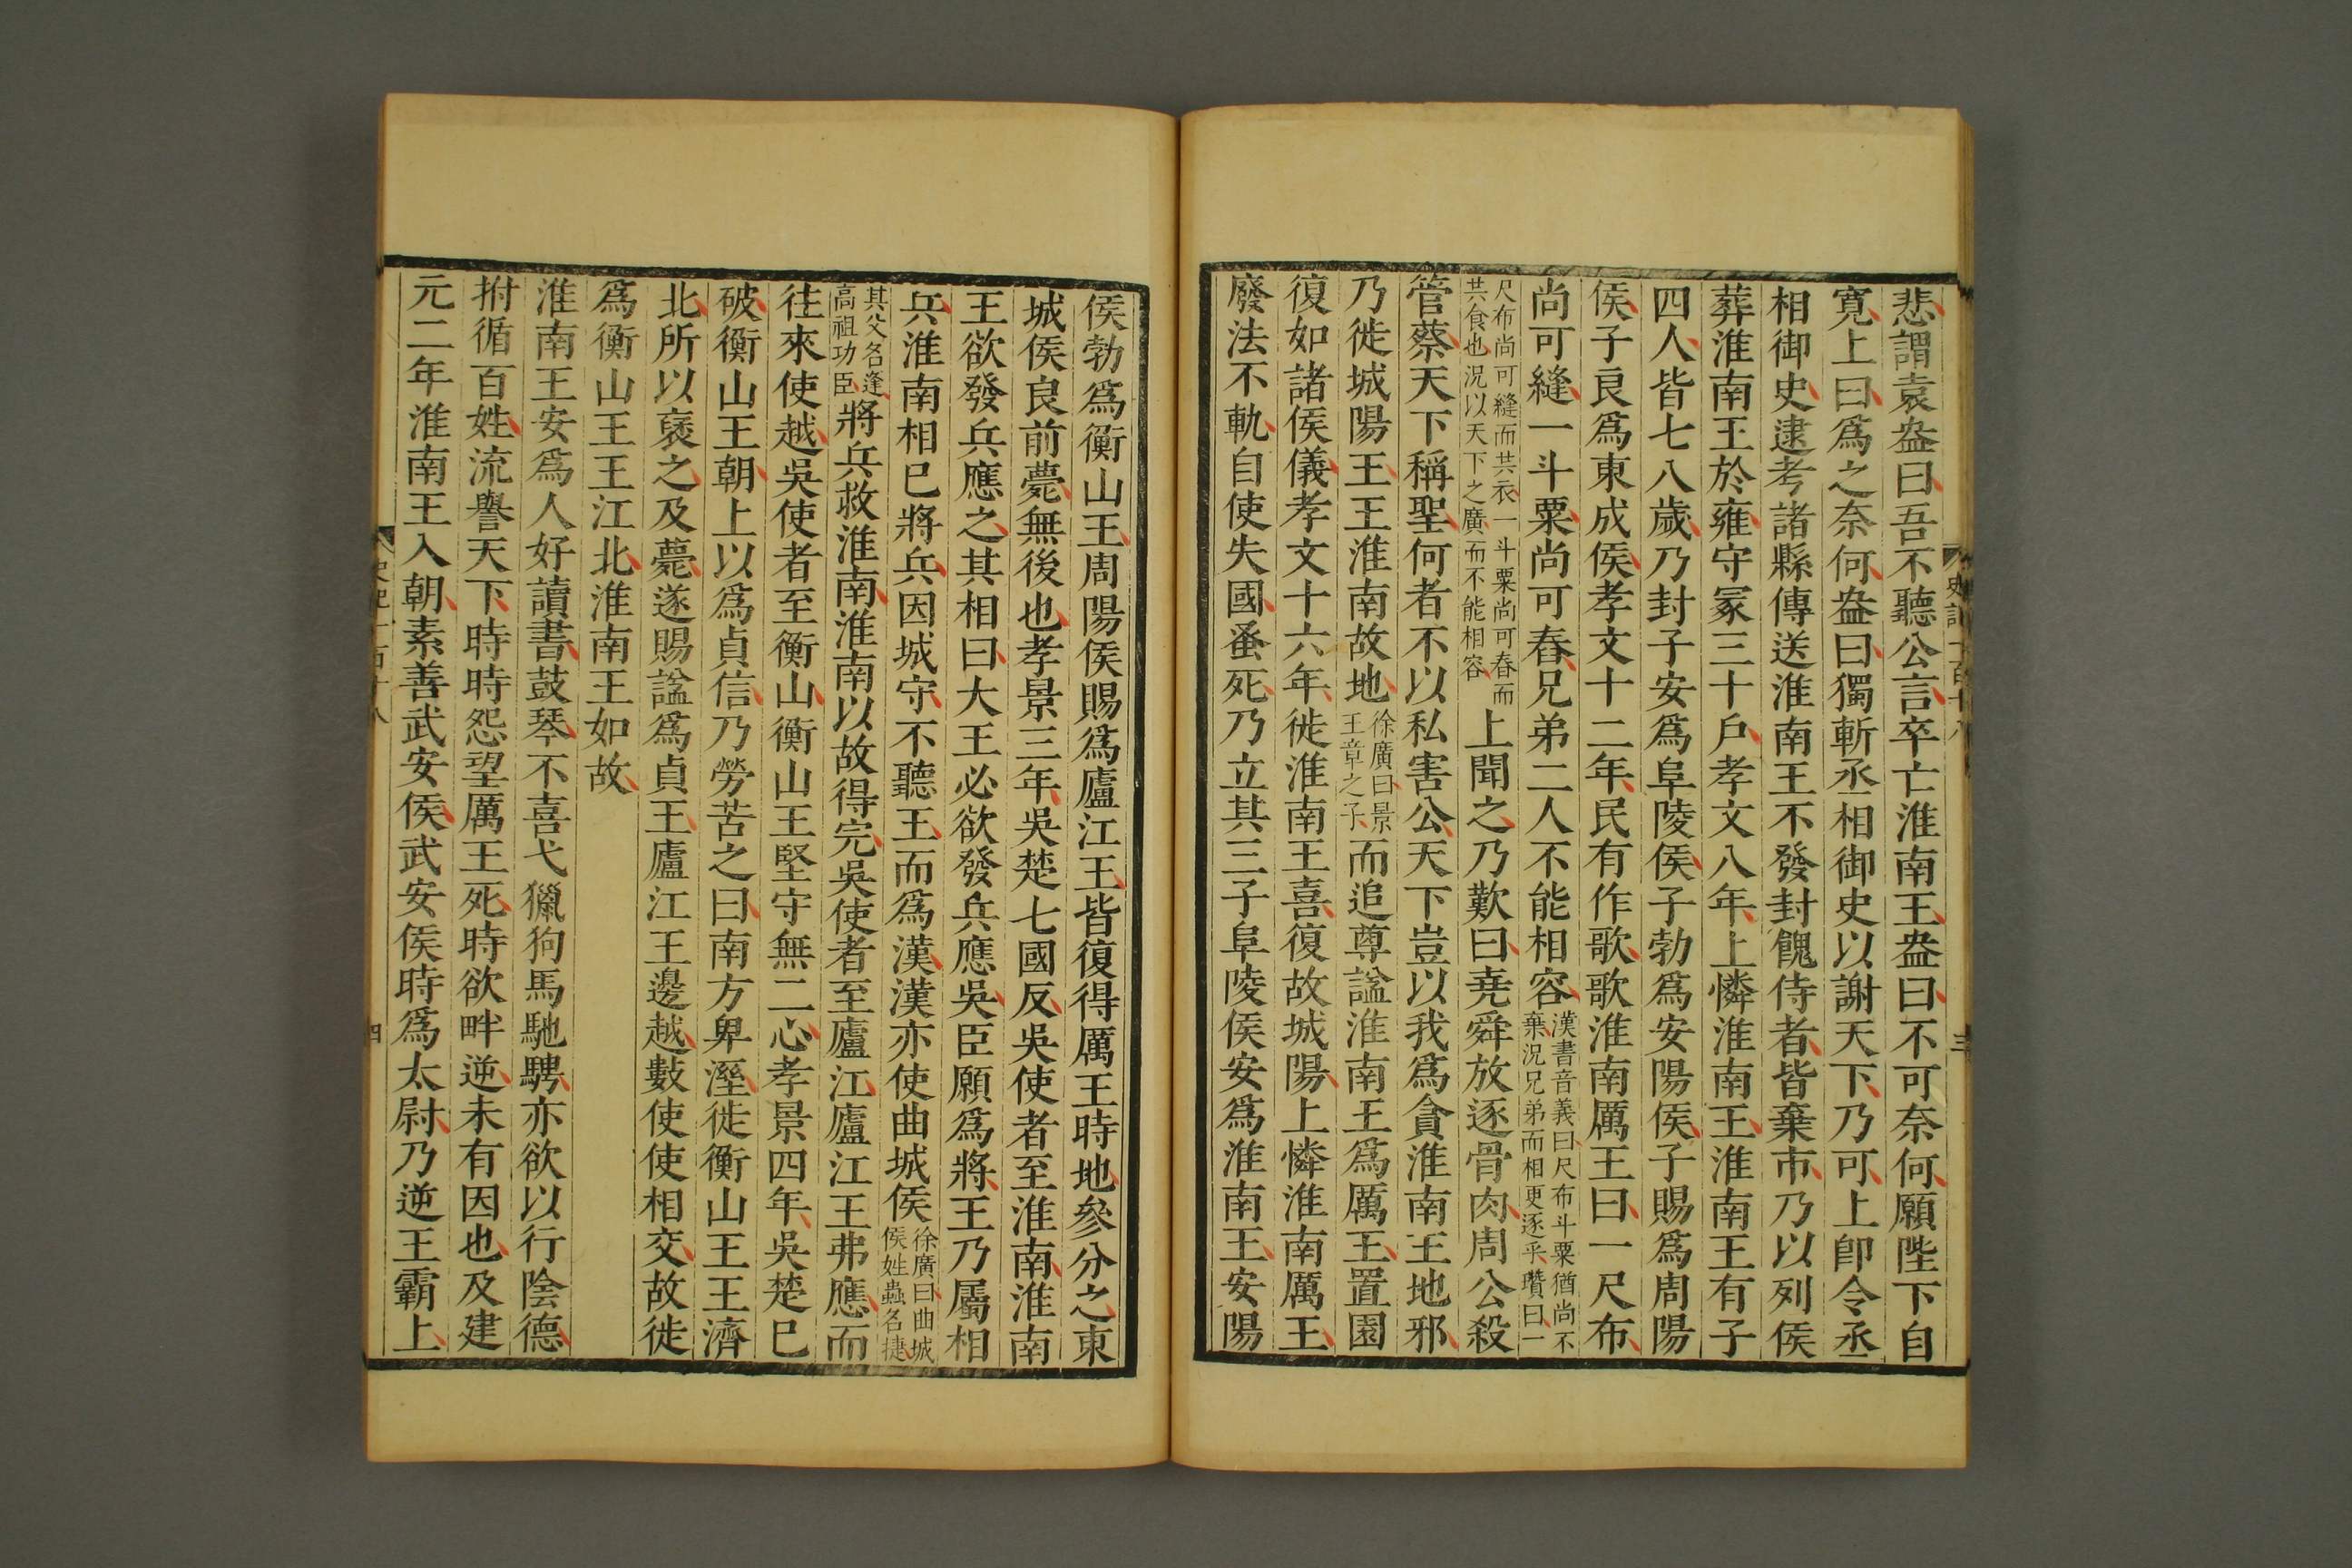 悲謂袁盎曰吾不聽公言卒亡淮南王盎曰不可奈何願陛下自
寬上曰爲之奈何盎曰獨斬丞相御史以謝天下乃可上卽令丞
相御史逮考諸縣傳送淮南王不發封餽侍者皆棄市乃以列侯
葬淮南王於雍守冢三十戶孝文八年上憐淮南王淮南王有子
四人皆七八歲乃封子安爲阜陵侯子勃爲安陽侯子賜爲周陽
侯子良爲東成侯孝文十二年民有作歌歌淮南厲王曰一尺布
尚可縫一斗粟尚可舂兄弟二人不能相容漢書音義曰尺布斗粟猶尚不棄況兄弟而相更逐乎瓚曰一
尺布尚可縫而共衣一斗粟尚可舂而共食也況以天下之廣而不能相容上聞之乃歎曰堯舜放逐骨肉周公殺
管蔡天下稱聖何者不以私害公天下豈以我爲貪淮南王地邪
乃徙城陽王王淮南故地徐廣曰景王章之子而追尊謚淮南王爲厲王置園
復如諸侯儀孝文十六年徙淮南王喜復故城陽上憐淮南厲王
廢法不軌自使失國蚤死乃立其三子阜陵侯安爲淮南王安陽
史記一百十八
三
侯勃爲衡山王周陽侯賜爲廬江王皆復得厲王時地參分之東
城侯良前薨無後也孝景三年吳楚七國反吳使者至淮南淮南
王欲發兵應之其相曰大王必欲發兵應吳臣願爲將王乃屬相
兵淮南相已將兵因城守不聽王而爲漢漢亦使曲城侯徐廣曰曲城侯姓蟲名捷
其父名逢高祖功臣將兵救淮南淮南以故得完吳使者至廬江廬江王弗應而
往來使越吳使者至衡山衡山王堅守無二心孝景四年吳楚已
破衡山王朝上以爲貞信乃勞苦之曰南方卑溼徙衡山王王濟
北所以襃之及薨遂賜謚爲貞王廬江王邊越數使使相交故徙
爲衡山王王江北淮南王如故
淮南王安爲人好讀書鼓琴不喜弋獵狗馬馳騁亦欲以行陰德
拊循百姓流譽天下時時怨望厲王死時欲畔逆未有因也及建
元二年淮南王入朝素善武安侯武安侯時爲太尉乃逆王霸上
史記一百十八
四